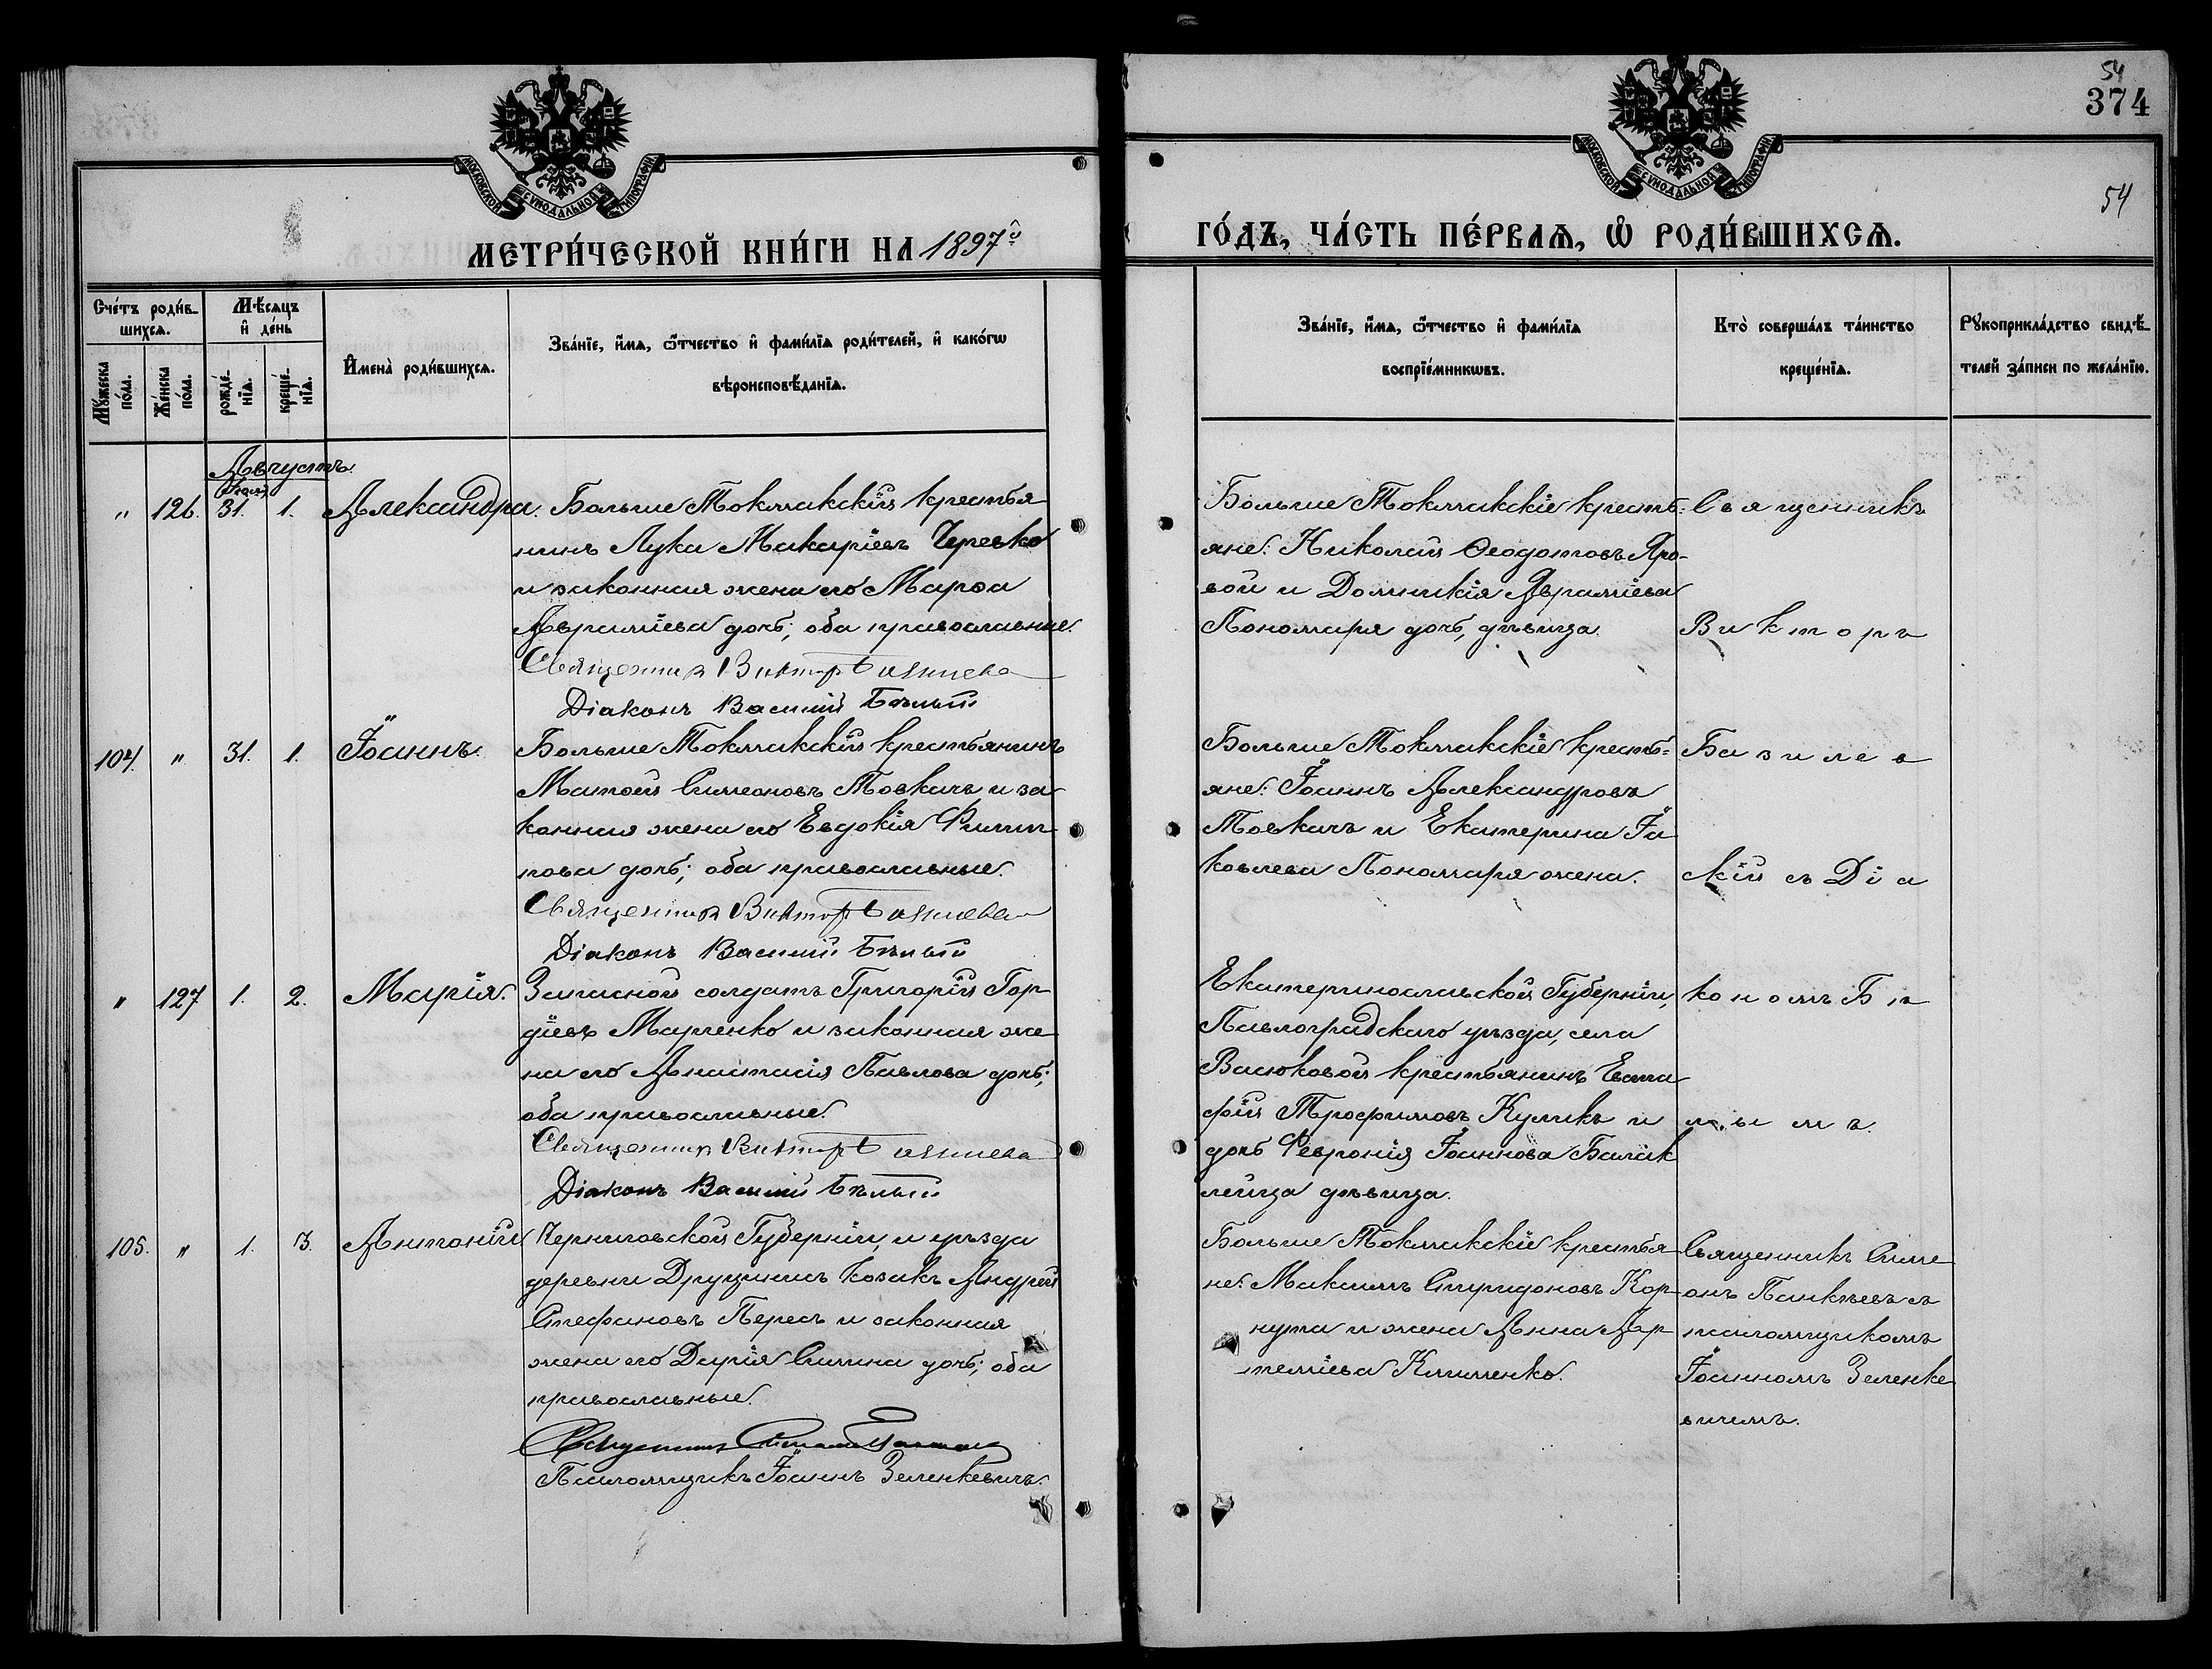 54
374
54
МОСКОВСКОЙ СѴНОДАЛЬНОЙ ТИПОГРАФІИ
МОСКОВСКОЙ СѴНОДАЛЬНОЙ ТИПОГРАФІИ
МЕТРИ́ЧЕСКОЙ КНИ́ГИ НА 1897й
ГО́ДЪ, ЧА́СТЬ ПЕ́РВАѦ, Ѡ҆ РОДИ́ВШИХСѦ.
Сче́тъ роди́в-
шихсѧ.
Мꙋ́жеска по́ла.
Же́нска по́ла.
Мѣ́сѧцъ
и҆ де́нь
рожде́-
нїѧ.
креще́-
нїѧ.
И҆мена̀ роди́вшихсѧ.
Зва́нїе, и҆́мѧ, ѻ҆́тчество и҆ фами́лїѧ роди́телей, и҆ како́гѡ
вѣроисповѣ́данїѧ.
Зва́нїе, и҆́мѧ, ѻ҆́тчество и҆ фами́лїѧ
воспрїе́мникѡвъ.
Кто̀ соверша́лъ та́инство
креще́нїѧ.
Рꙋкоприкла́дство свидѣ́-
телей за́писи по жела́нїю.
Августъ.
" 126. 31. 1. Александра.
Больше Токмакскій крестья
нинъ Лука Макаріевъ Черевко
и законная жена его Марѳа
Авраміева дочь; оба православные.
Священникъ Викторъ Базилев
Діаконъ Василій Бѣлый
Больше Токмакскіе кресть=
яне: Николай Ѳеодотовъ Яро-
вой и Домникія Авраміева
Пономаря дочь, дѣвица.
Священникъ
Викторъ
104. " 31. 1. Іоаннъ.
Больше Токмакскій крестьянинъ
Матѳей Симеоновъ Товкачъ и за
конная жена его Евдокія Филип-
пова дочь; оба православные.
Священникъ Викторъ Базилев
Діаконъ Василій Бѣлый
Больше Токмакскіе кресть=
яне: Іоаннъ Александровъ
Товкачъ и Екатерина Іа
ковлева Пономаря жена.
Базилев
скій съ Діа
" 127 1. 2. Марія.
Запасной солдатъ Григорій Гор-
діевъ Марченко и законная же
на его Анастасія Павлова дочь;
оба православные.
Священникъ Викторъ Базилев
Діаконъ Василій Бѣлый
Екатеринославской Губерніи,
Павлоградскаго уѣзда, села
Васюковой крестьянинъ Евста
фій Трофимовъ Куликъ и
дочь Февронія Іоаннова Балак
лейца дѣвица.
кономъ Бѣ
лымъ.
105. " 1. 3. Антоній
Черниговской Губерніи, и уѣзда
деревни Друцкихъ козакъ Андрей
Стефановъ Пересъ и законная
жена его Дарія Саввина дочь; оба
православные.
Псаломщикъ Іоаннъ Зеленкевичъ.
Больше Токмакскіе крестья
не: Максимъ Спиридоновъ Кор-
нута и жена Анна Ар-
темміева Клименко.
Священникъ Симе
онъ Панкѣевъ съ
псаломщикомъ
Іоанномъ Зеленке
вичемъ.